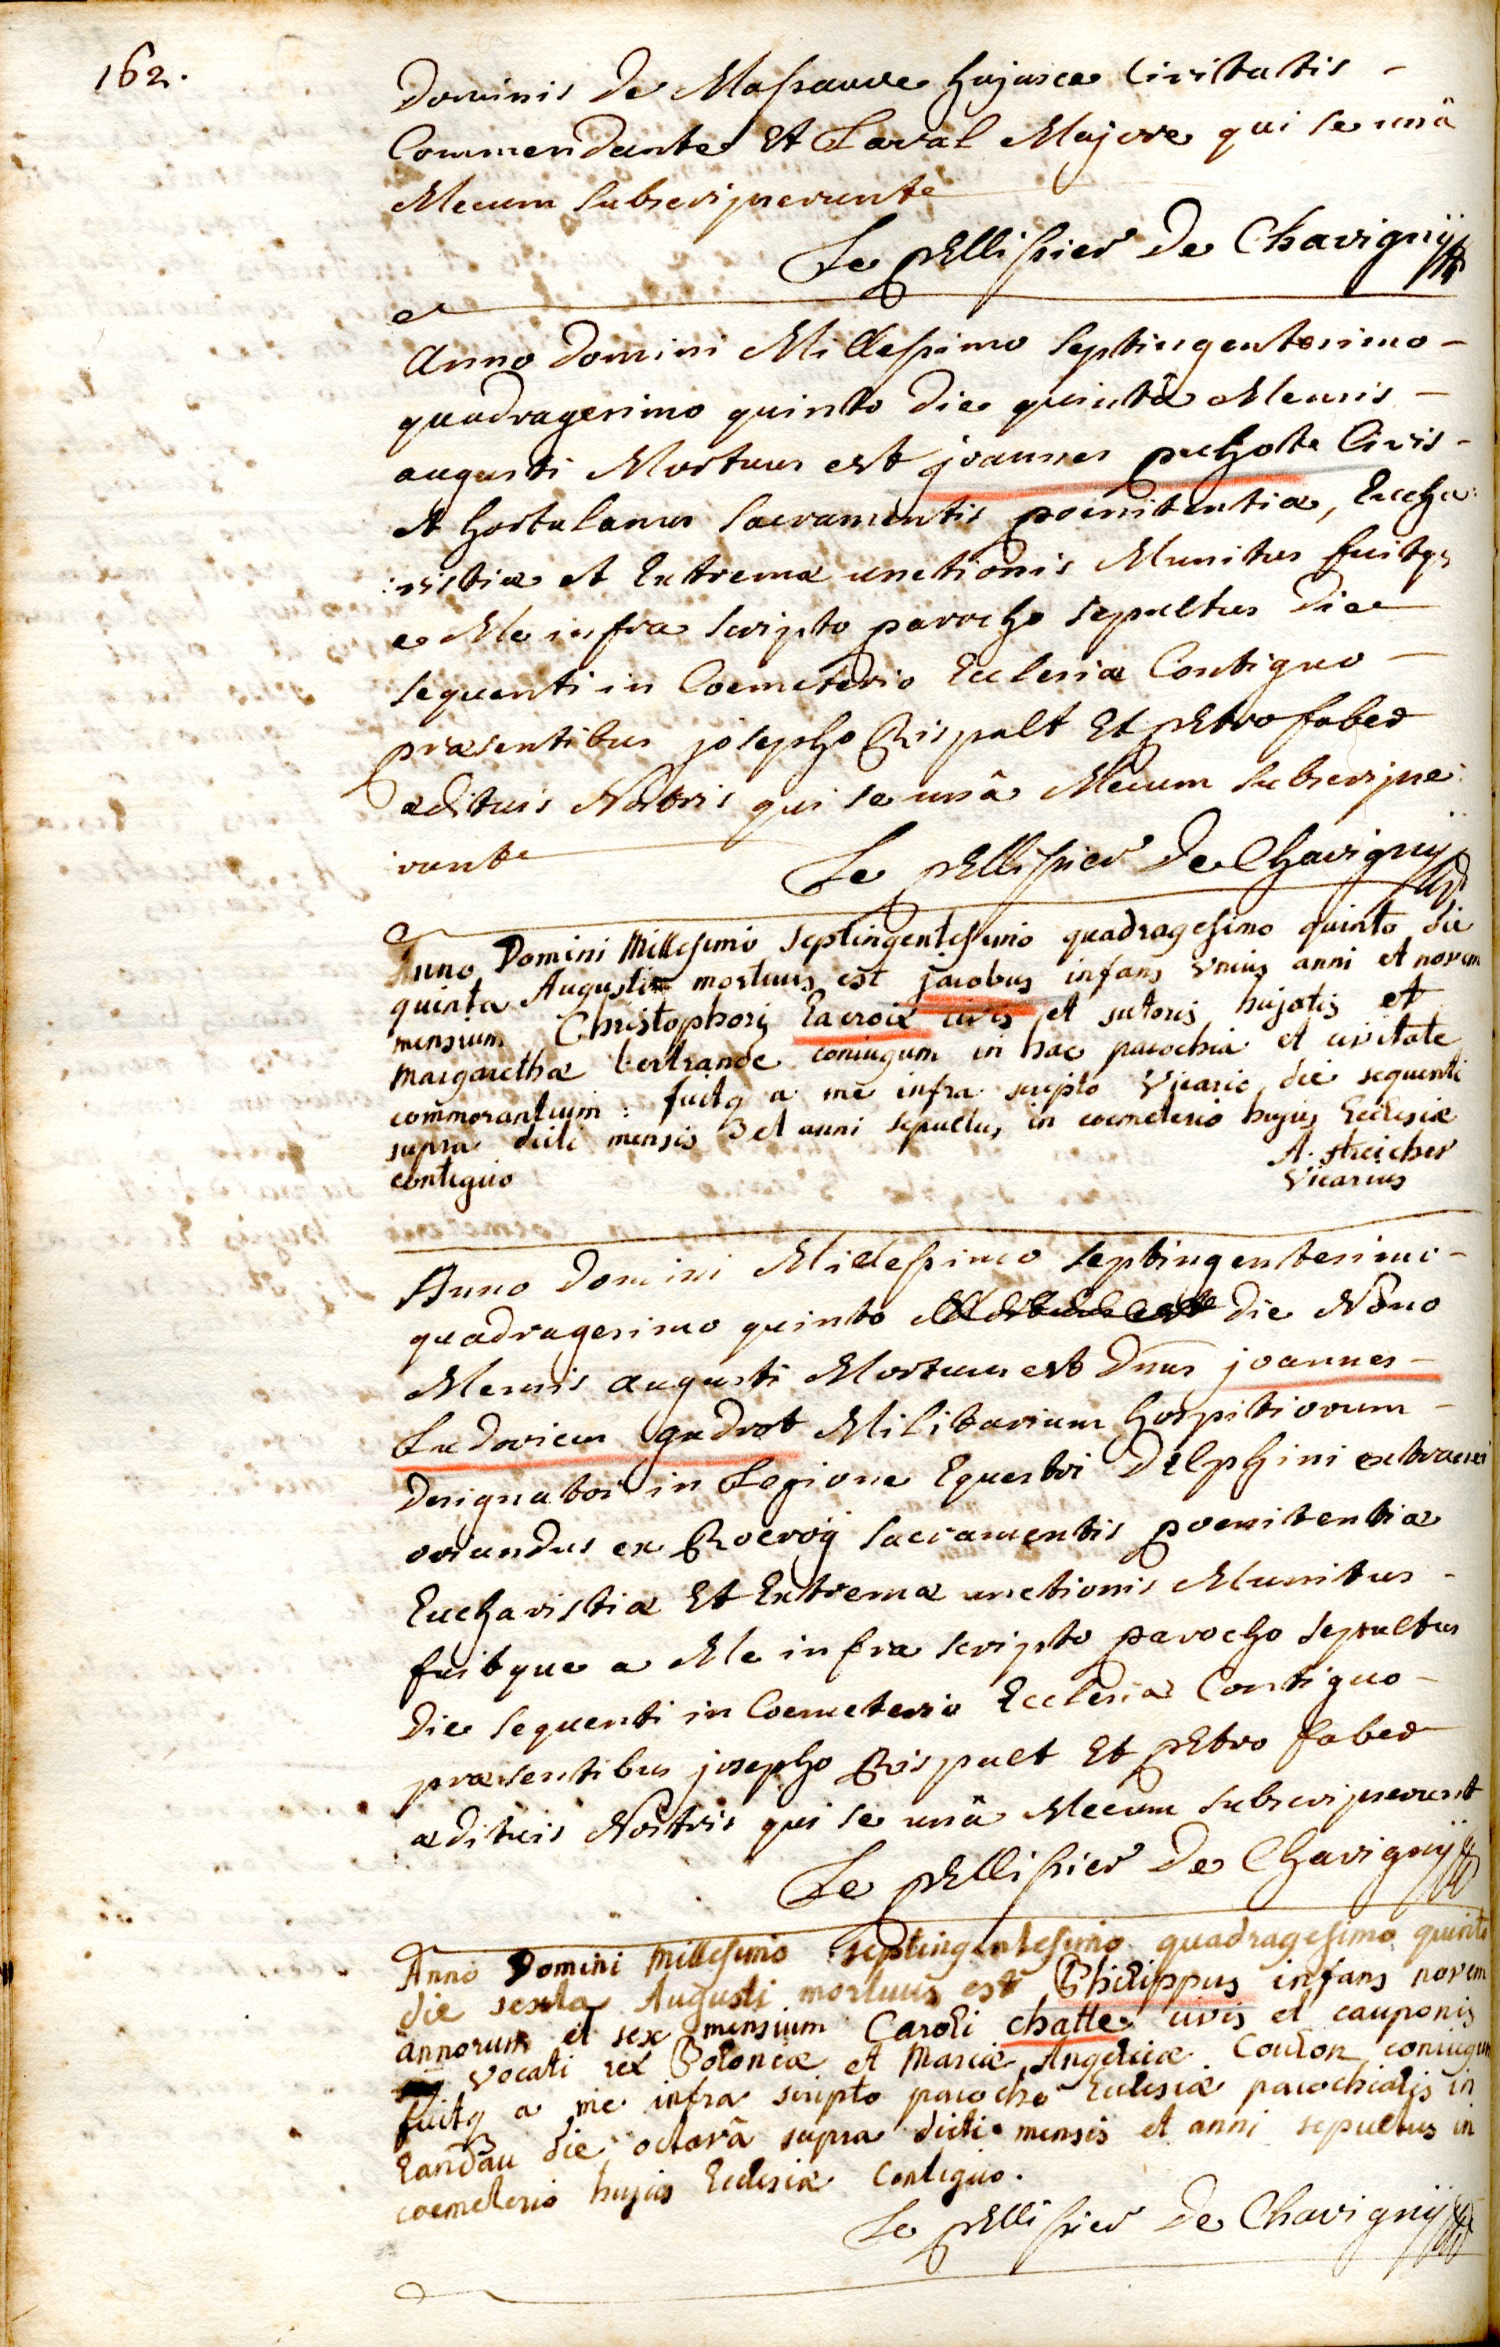 162.
Dominis De Massauve hujusce Civitatis -
Commendante Et Laval Majore qui se unâ
Mecum subscripserunt
Le pEllissier De Chavignÿ
Anno Domini Millessimo septingentesimo -
quadragesimo quinto Die quintâ Mensis -
augusti Mortuus est joannes puchote Civis -
et hortulanus sacramentis poenitentiæ, Eucha:
:ristiæ et Extremæ unctionis Munitus fuitq;
a Me infra scripto parocho sepultus Die
sequenti in Coemeterio Ecclesiæ Contiguo -
præsentibus josepho Rispalt Et pEtro faber
ædituis Nostris qui se unâ Mecum subscripse:
:runt
Le pEllissier De Chavignÿ
Anno Domini Millesimo septingentesimo quadragesimo quinto die
quinta Augusti mortuus est jacobus infans unius anni et novem
mensium Christophori Lacroix civis et sutoris hujatis et
Margarethæ bertrande coniugum in hac parochia et civitate
commorantium: fuitq a me infra scripto Vicario die sequenti
supra dicti mensis et anni sepultus in coemeterio hujus Ecclesiæ
contiguo
A. streicher
Vicarius
Anno Domini Millessimo septingentesimo -
quadragesimo quinto Die Nono
Mensis augusti Mortuus est Dnus joannes -
Ludovicus gudrot Militarium hospitiorum -
Designator in Legione Equestri DElphini extranei
oriundus ex Rocroÿ sacramentis poenitentiæ
Eucharistiæ Et Extremæ unctionis Munitus -
fuitque a Me infra scripto parocho sepultus
Die sequenti in Coemeterio Ecclesiæ Contiguo -
præsentibus josepho Rispalt Et pEtro faber
ædituis Nostris qui se unâ Mecum subscripserunt
Le pEllissier De Chavignÿ
Anno Domini Millesimo septingentesimo quadragesimo quinto
die sexta Augusti mortuus est Philippus infans novem
annorum et sex mensium Caroli chatte civis et cauponis
vocati rex Poloniæ et Mariæ Angelicæ Coulon coniugum
fuitq a me infra scripto parocho Ecclesiæ parochialis in
Landau die octavâ supra dicti mensis et anni sepultus in
coemeterio hujus Ecclesiæ Contiguo.
Le pEllissier De Chavignÿ